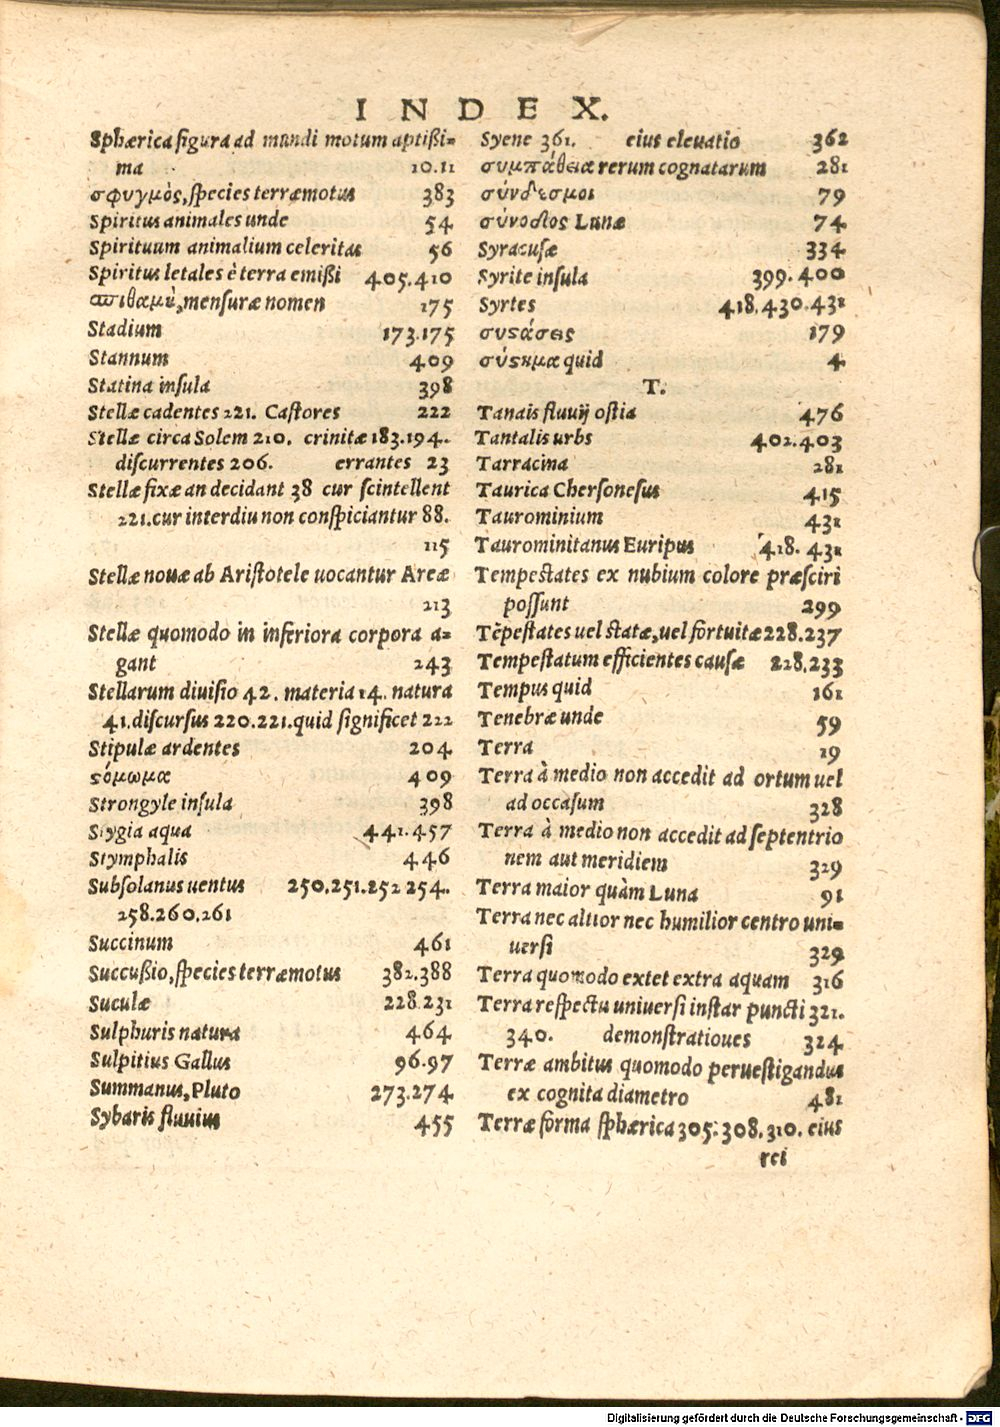 INDEX.
Sphærica figura ad mundi motum aptißi-
ma 10.11
σφυγμὸς, species terræmotus 383
Spiritus animales unde 54
Spirituum animalium celeritas 56
Spiritus letales è terra emißi 405.410
σπιθαμὴ, mensuræ nomen 175
Stadium 173.175
Stannum 409
Statina insula 398
Stellæ cadentes 221. Castores 222
Stellæ circa Solem 210. crinitæ 183.194.
discurrentes 206. errantes 23
Stellæ fixæ an decidant 38 cur scintellent
221.cur interdiu non conspiciantur 88.
115
Stellæ nouæ ab Aristotele uocantur Areæ
213
Stellæ quomodo in inferiora corpora a-
gant 243
Stellarum diuisio 42. materia 14. natura
41.discursus 220.221.quid significet 222
Stipulæ ardentes 204
ϛόμωμα 409
Strongyle insula 398
Stygia aqua 441.457
Stymphalis 446
Subsolanus uentus 250.251.252 254.
258.260.261
Succinum 461
Succußio, species terræmotus 382.388
Suculæ 228.231
Sulphuris natura 464
Sulpitius Gallus 96.97
Summanus, Pluto 273.274
Sybaris fluuius 455
Syene 361. eius eleuatio 362
συμπάθεια rerum cognatarum 281
σύνδεσμοι 79
σύνοδος Lunæ 74
Syracusæ 334
Syrite insula 399.400
Syrtes 418.430.431
συϛάσεις 179
σύϛημα quid 4
T.
Tanais fluuij ostia 476
Tantalis urbs 402.403
Tarracina 281
Taurica Chersonesus 415
Taurominium 431
Taurominitanus Euripus 418. 431
Tempestates ex nubium colore præsciri
possunt 299
Tẽpestates uel statæ, uel fortuitæ 228.237
Tempestatum efficientes causæ 228.233
Tempus quid 161
Tenebræ unde 59
Terra 19
Terra à medio non accedit ad ortum uel
ad occasum 328
Terra à medio non accedit ad septentrio
nem aut meridiem 329
Terra maior quàm Luna 91
Terra nec altior nec humilior centro uni-
uersi 329
Terra quomodo extet extra aquam 316
Terra respectu uniuersi instar puncti 321.
340. demonstrationes 324
Terræ ambitus quomodo peruestigandus
ex cognita diametro 481
Terræ forma sphærica 305. 308. 310. eius
rei
Digitalisierung gefördert durch die Deutsche Forschungsgemeinschaft - DFG